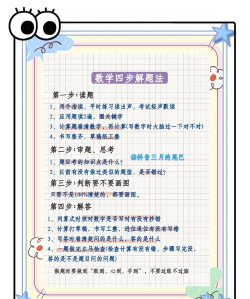 数学四步解题法
第一步:读题
1、用手指读、平时练习读出声、考试轻声默读
2、应用题读2遍、圈关键字
3、计算题看清数字、再计算(写数字时大脑过一下对不对)
4、书写整齐、草稿纸工整
第二步:审题、思考
@抖音三月的尾巴
1、题目考的知识点是什么?
2、以前有没有做过类似的题型、是否错过?
第三步:判断要不要画图
只要不是100%清楚的、都要画图。
第四步:解答
1、用算式时按对数字是否写对有没有抄错
2、计算打草稿、书写工整、进位退位有没有写错
3、写答时看清楚问的是什么、答的是什么
4、一题做完立马检查(检查计算有没有错、步骤写完没、
答的是不是题目问的问题)
做题时要做到“眼到、心到、手到”、不要过眼不过脑